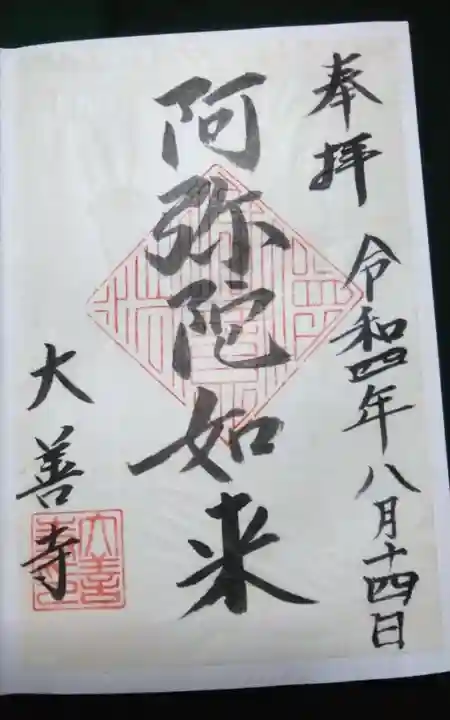 奉拝
令和四年八月十四日
阿弥陀如来
大善寺